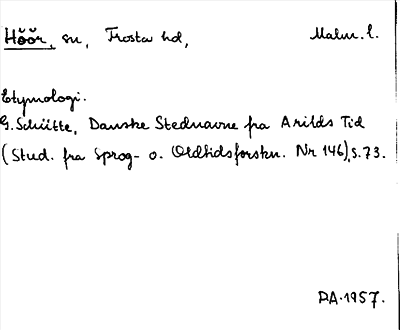 Höör, sn, Frosta hd, Malm. l.
Etymologi.
G. Schütte, Danske Stednavne fra Arilds Tid
(Stud. fra Sprog- o. Oldtidsforskn. Nr 146), s. 73.
DA. 1957.